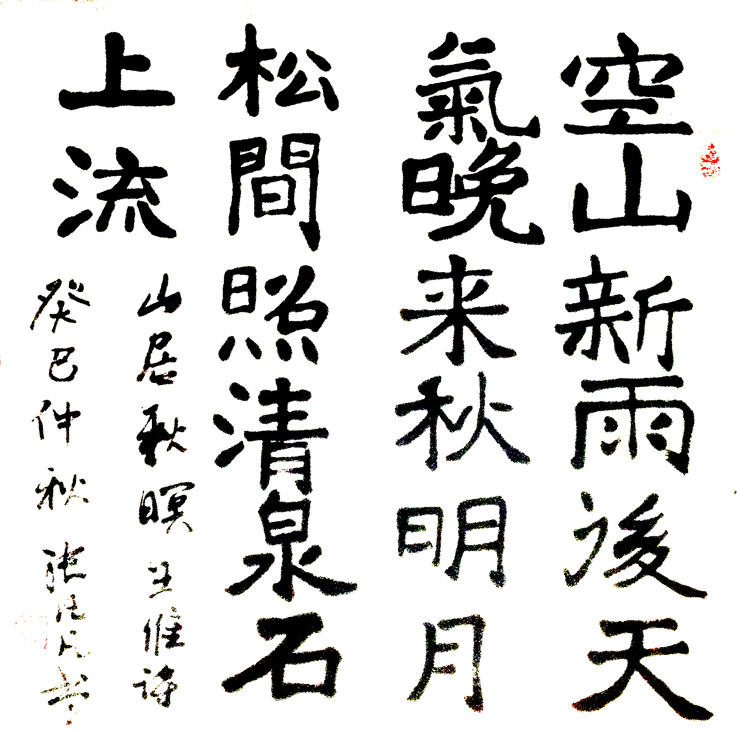 空山新雨後天
氣晚来秋明月
松間照清泉石
上流
山居秋暝王維詩
癸巳仲秋張凡書